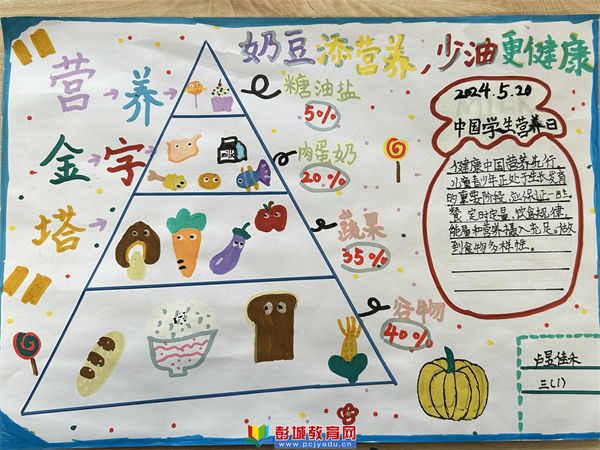 奶豆添营养,少油更健康
营→养
金→字
塔→
糖油盐
5%
肉蛋奶
20%
蔬果
35%
谷物
40%
2024.5.20
中国学生营养日
健康中国营养先行,
儿童青少年正处于生长发育
的重要阶段,应保证一日三
餐,定时定量,饮食规律,
能量和营养摄入充足,做
到食物多样性。
三(1)
彭城教育网
www.pcjyedu.cn